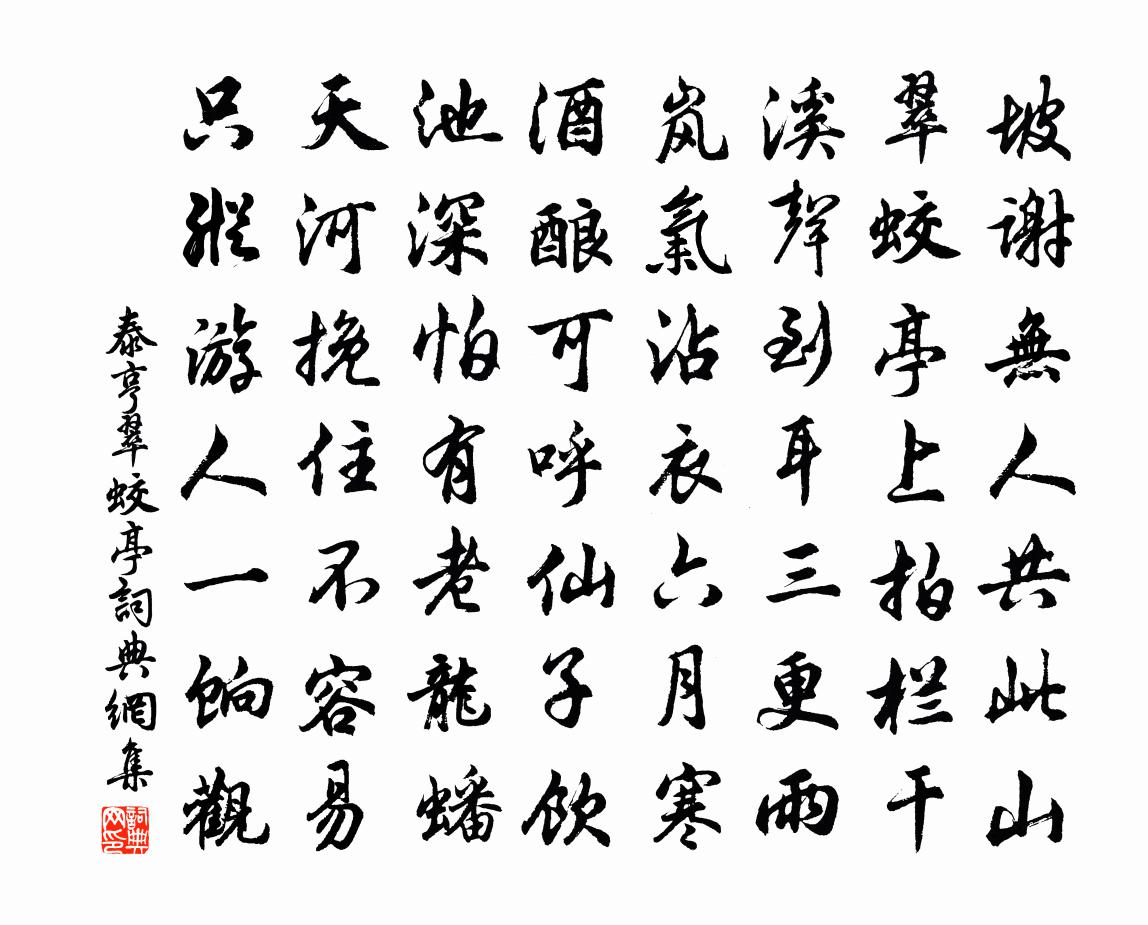 坡谢無人共此山
翠蛟亭上拍栏干
溪聲到耳三更雨
岚氣沾衣六月寒
酒酿可呼仙子饮
池深怕有老龍蟠
天河挽住不容易
只縱游人一饷觀
泰亨翠蛟亭詞典網集
詞典网印